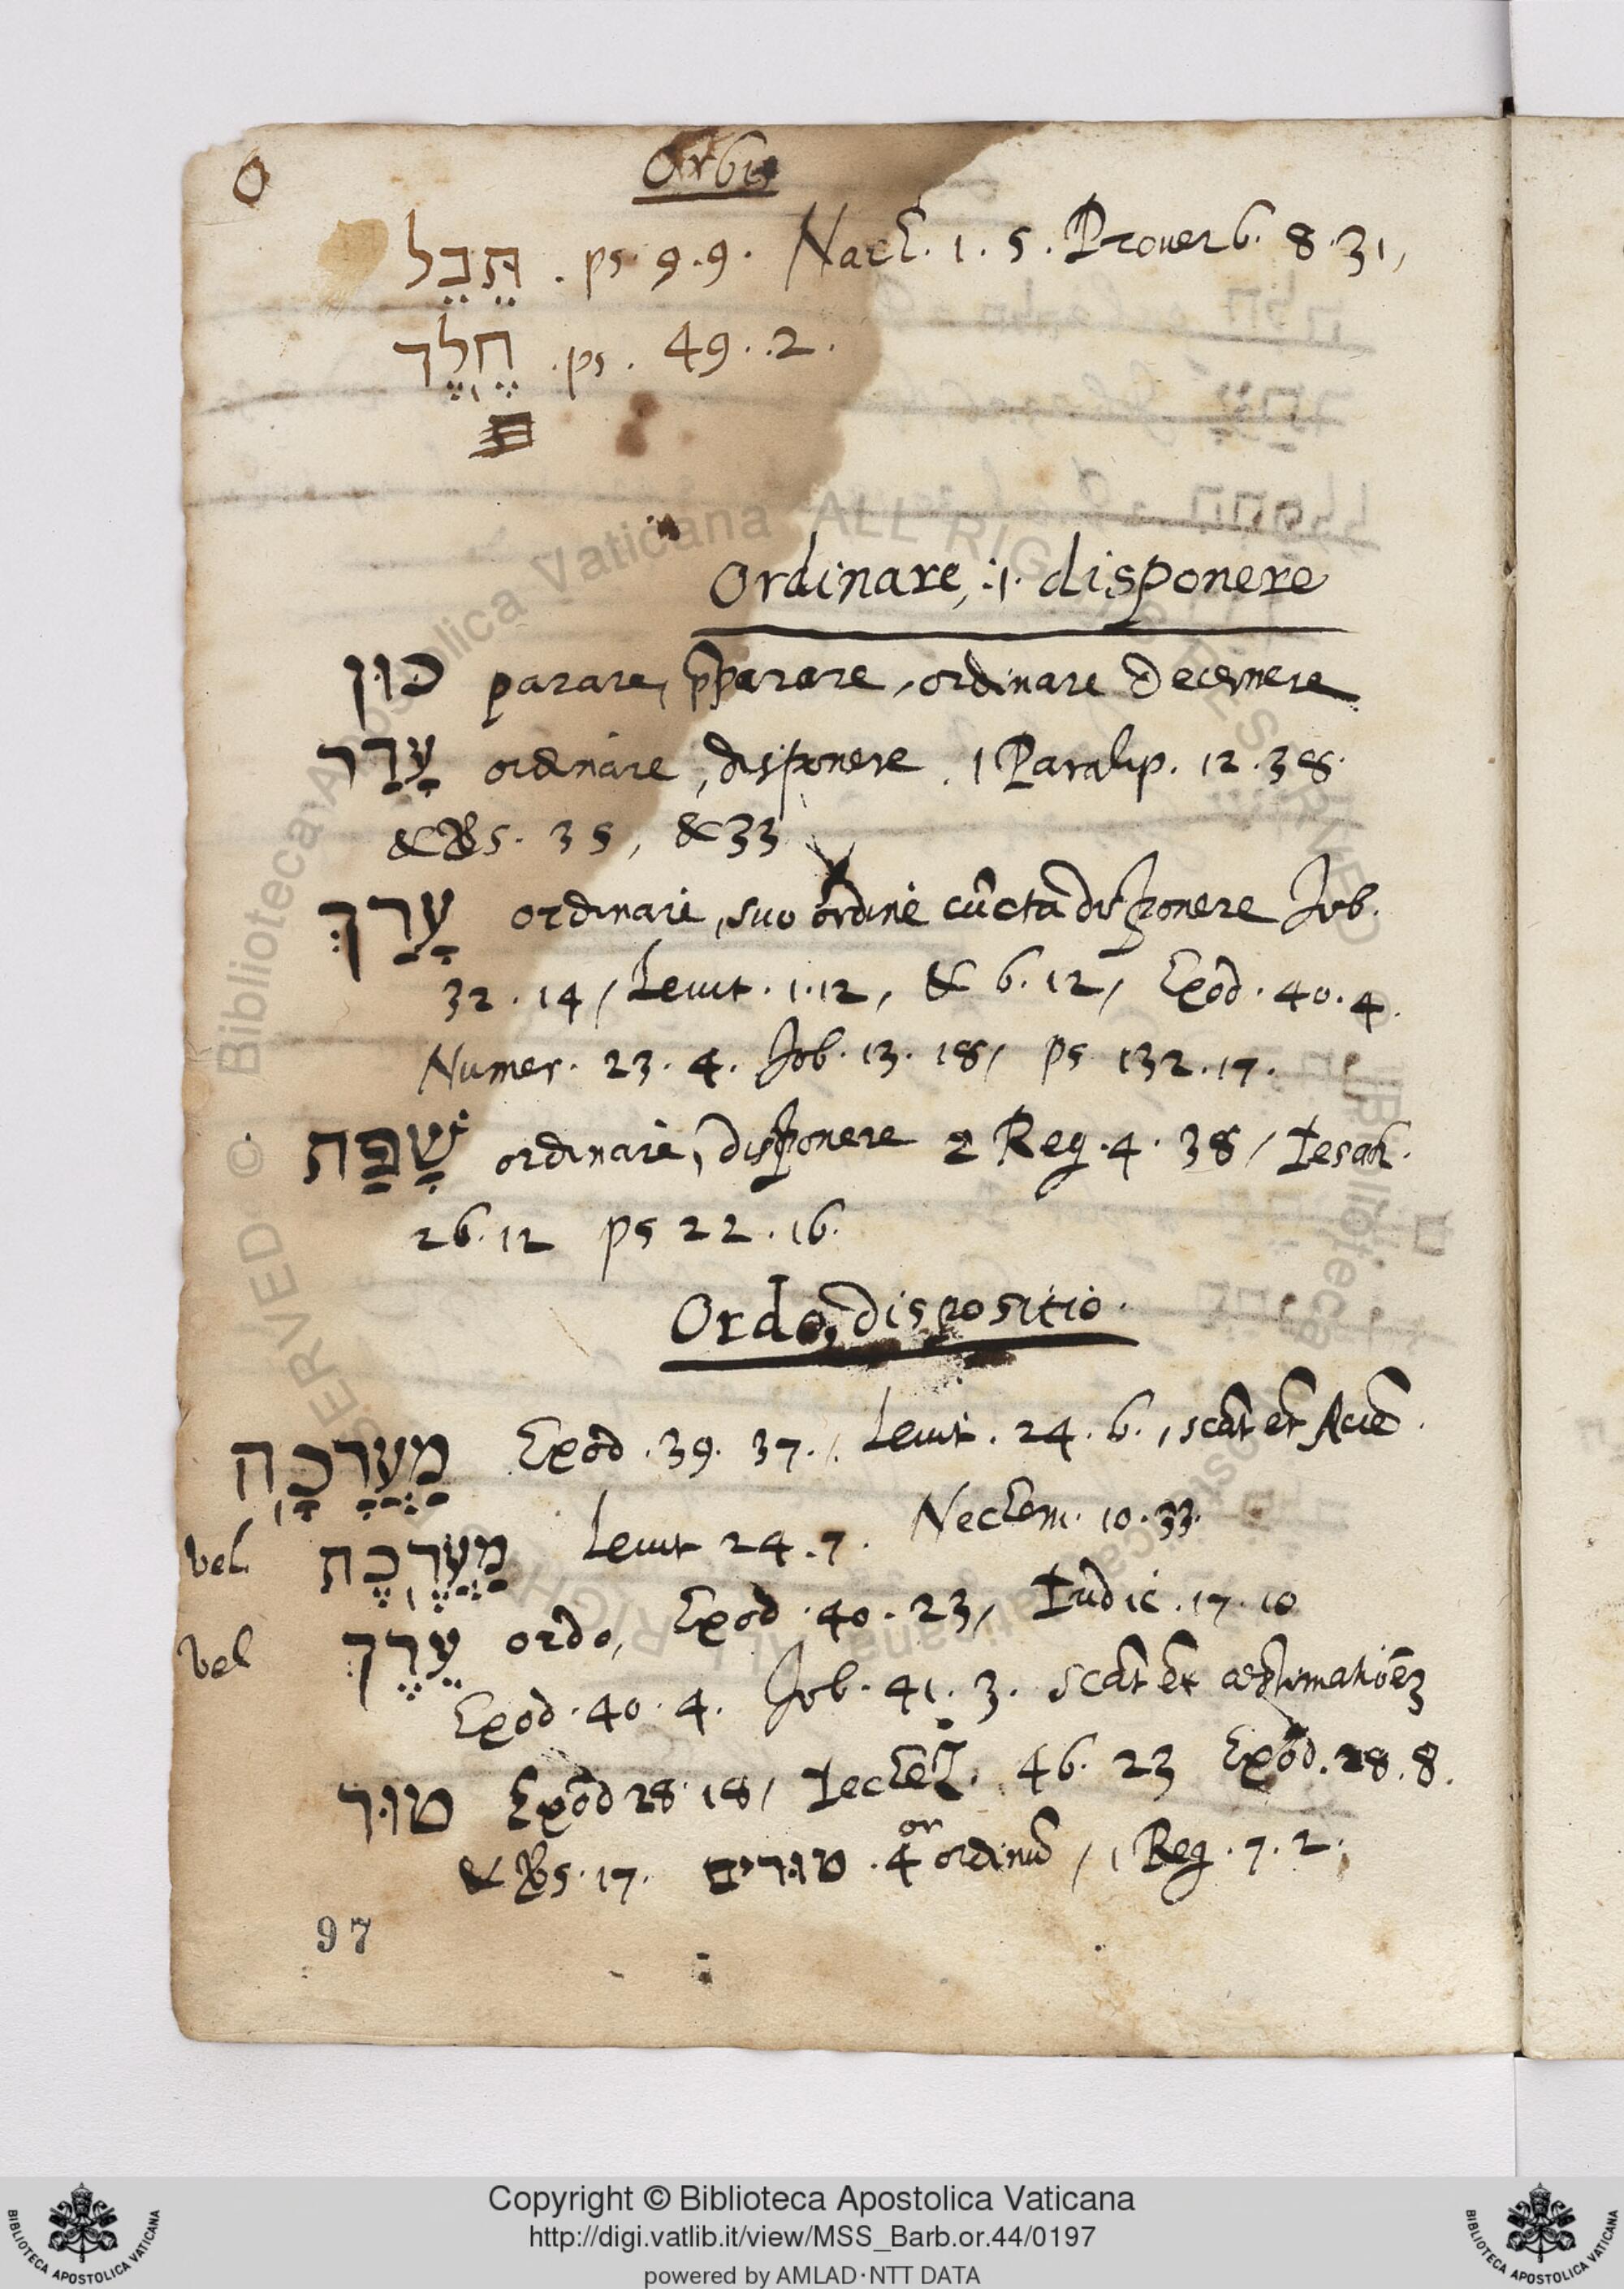 O
Orbis
תֵּבֵל . ps. 9.9. Nach. 1. 5. Prouerb. 8.31,
חֶלֶךְ . ps. 49. 2.
Ordinare, .i. disponere
כוּן parare, p̄parare, ordinare Decernere
עָדַר ordinare, disponere. 1 Paralip. 12.38.
& 35, & 33
עָרַךְ ordinare, suo ordine cūcta disponere Job.
32. 14, Leuit. 1.12, & 6.12, Exod. 40.4.
Numer. 23. 4. Job. 13. 18, ps 132.17.
שָׁפַּת ordinare, disponere 2 Reg. 4. 38, Iesah.
26.12 ps 22.16.
Ordo, dispositio.
מַעֲרָכָה Exod. 39. 37., Leuit. 24. 6.,
vel מַעֲרֶכֶת Leuit 24.7. Nechem. 10.33.
vel עֵרֶךְ ordo, Exod. 40. 23, Iudic. 17.10
Exod. 40. 4. Job. 41. 3.
טוּר Exod 28.18, Iechez. 46. 23 Exod. 28. 8.
& 17. טוּרים . 4 or ordinū, 1 Reg. 7. 2.
97
Copyright © Biblioteca Apostolica Vaticana
http://digi.vatlib.it/view/MSS_Barb.or.44/0197
powered by AMLAD·NTT DATA
BIBLIOTECA APOSTOLICA VATICANA
BIBLIOTECA APOSTOLICA VATICANA